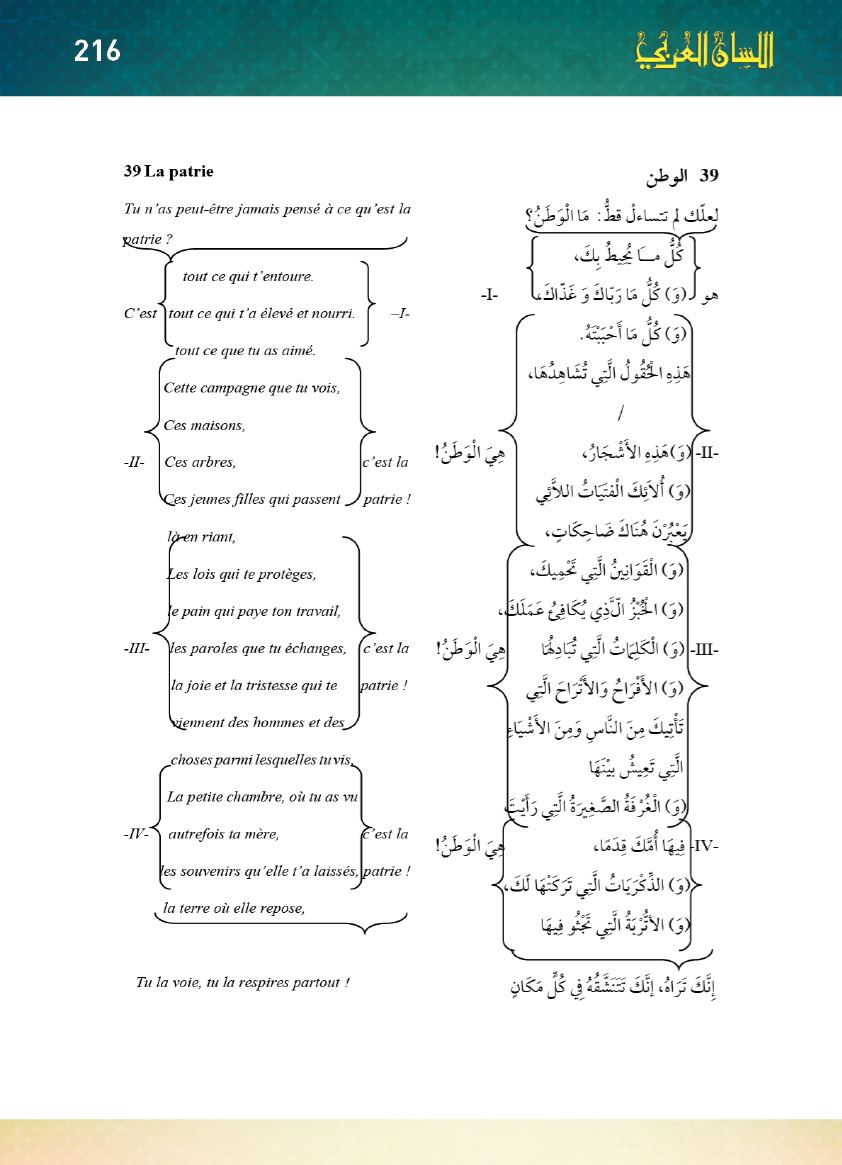 216
اللسان العربي
39 La patrie
Tu n’as peut-être jamais pensé à ce qu’est la
patrie ?
tout ce qui t’entoure.
C’est tout ce qui t’a élevé et nourri. –I-
tout ce que tu as aimé.
Cette campagne que tu vois,
Ces maisons,
-II- Ces arbres, c’est la
Ces jeunes filles qui passent patrie !
là en riant,
Les lois qui te protèges,
le pain qui paye ton travail,
-III- les paroles que tu échanges, c’est la
la joie et la tristesse qui te patrie !
viennent des hommes et des
choses parmi lesquelles tu vis,
La petite chambre, où tu as vu
-IV- autrefois ta mère, c’est la
les souvenirs qu’elle t’a laissés, patrie !
la terre où elle repose,
Tu la voie, tu la respires partout !
39 الوطن
لعلّك لم تتساءلْ قطُّ: مَا الْوَطَنُ؟
كُلُّ مـا يُحِيطُ بِكَ،
هو (وَ) كُلُّ مَا رَبّاكَ وَ غَذّاكَ، -I-
(وَ) كُلُّ مَا أَحْبَبْتَهُ.
هَذِهِ الْحُقُولُ الَّتِي تُشَاهِدُهَا،
/
-II- (وَ)هَذِهِ الأَشْجَارُ، هِيَ الْوَطَنُ!
(وَ) أُلاَئِكَ الْفتَيَاتُ اللاَّئِي
يَعْبُرْنَ هُنَاكَ ضَاحِكَاتٍ،
(وَ) الْقَوَانِينُ الَّتِي تَحْمِيكَ،
(وَ) الْخُبْزُ الّذِي يُكَافِئُ عَمَلَكَ،
-III- (وَ) الْكَلِمَاتُ الَّتِي تُبَادِلُهَا هِيَ الْوَطَنُ!
(وَ) الأَفْرَاحُ وَالأَتْرَاحَ الَّتِي
تَأْتِيكَ مِنَ النَّاسِ وَمِنَ الأَشْيَاءِ
الَّتِي تَعِيشُ بيْنَهَا
(وَ) الْغُرْفَةُ الصَّغِيرَةُ الَّتِي رَأَيْتَ
-IV- فِيهَا أُمَّكَ قِدَمًا، هِيَ الْوَطَنُ!
(وَ) الذِّكْرَيَاتُ الَّتِي تَرَكَتْهَا لَكَ،
(وَ) الأتْرُبَةُ الَّتِي تَجْثُو فِيهَا
إِنَّكَ تَرَاهُ، إنَّكَ تَتَنَشَّقُهُ فِي كُلِّ مَكَانٍ